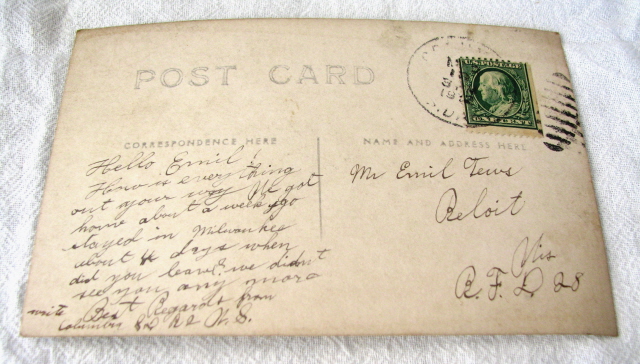 POST CARD
CORRESPONDENCE HERE
NAME AND ADDRESS HERE
Hello Emil!
How is everything
out your way I got
home about a week ago
stayed in Milwaukee
about 4 days when
did you leave? we didnt
see you any more
Best Regards from
write
Columbia SD R2 W. S.
Mr Emil Tews
Beloit
Wis
R. F. D 28